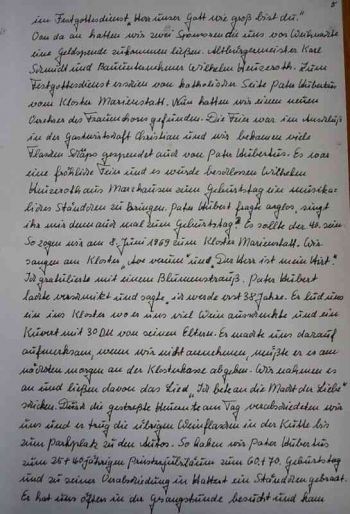 5
im Festgottesdienst „Herr unser Gott wie groß bist du."
Von da an hatten wir zwei Sponsoren die uns vor Weihnachten
eine Geldspende zukommen ließen. Altbürgermeister Karl
Schmidt und Bauunternehmer Wilhelm Heuzeroth. Zum
Festgottesdienst von katholischer Seite Pater Hubertus
vom Kloster Marienstatt. Nun hatten wir einen neuen
des Frauenchors gefunden. Die Feier war im Anschluß
in der Gastwirtschaft Christian und wir bekamen viele
Flaschen gespendet auch von Pater Hubertus. Es war
eine fröhliche Feier und es wurde beschlossen Wilhelm
Heuzeroth aus Marzhausen zum Geburtstag ein musika-
lisches Ständchen zu bringen. Pater Hubert fragte arglos, singt
ihr mir denn auch mal zum Geburtstag? Es sollte der 40. sein.
So zogen wir am 8. Juni 1969 zum Kloster Marienstatt. Wir
sangen am Kloster „Ave verum" und „Der Herr ist mein Hirt."
Ich gratulierte mit einem Blumenstrauß. Pater Hubert
lachte verschmitzt und sagte, ich werde erst 38 Jahre. Er lud uns
ein ins Kloster wo er uns viel Wein ausschenkte und ein
Kuvert mit 30 DM von seinen Eltern. Er machte uns darauf
aufmerksam, wenn wir nicht annehmen, müßte er es am
nächsten morgen an der Klosterkasse abgeben. Wir nahmen es
an und ließen davon das Lied „Ich bete an die Macht der Liebe"
schicken. Durch die am Tag verabschiedeten wir
uns und er trug die übrigen Weinflaschen in der Kutte bis
zum Parkplatz zu den Autos. So haben wir Pater Hubertus
zum 25 + 40 jährigen Priesterjubiläum zum 60. + 70. Geburtstag
und zu seiner Verabschiedung in Hattert ein Ständchen gebracht.
Er hat uns öfters in der Gesangstunde besucht und kam